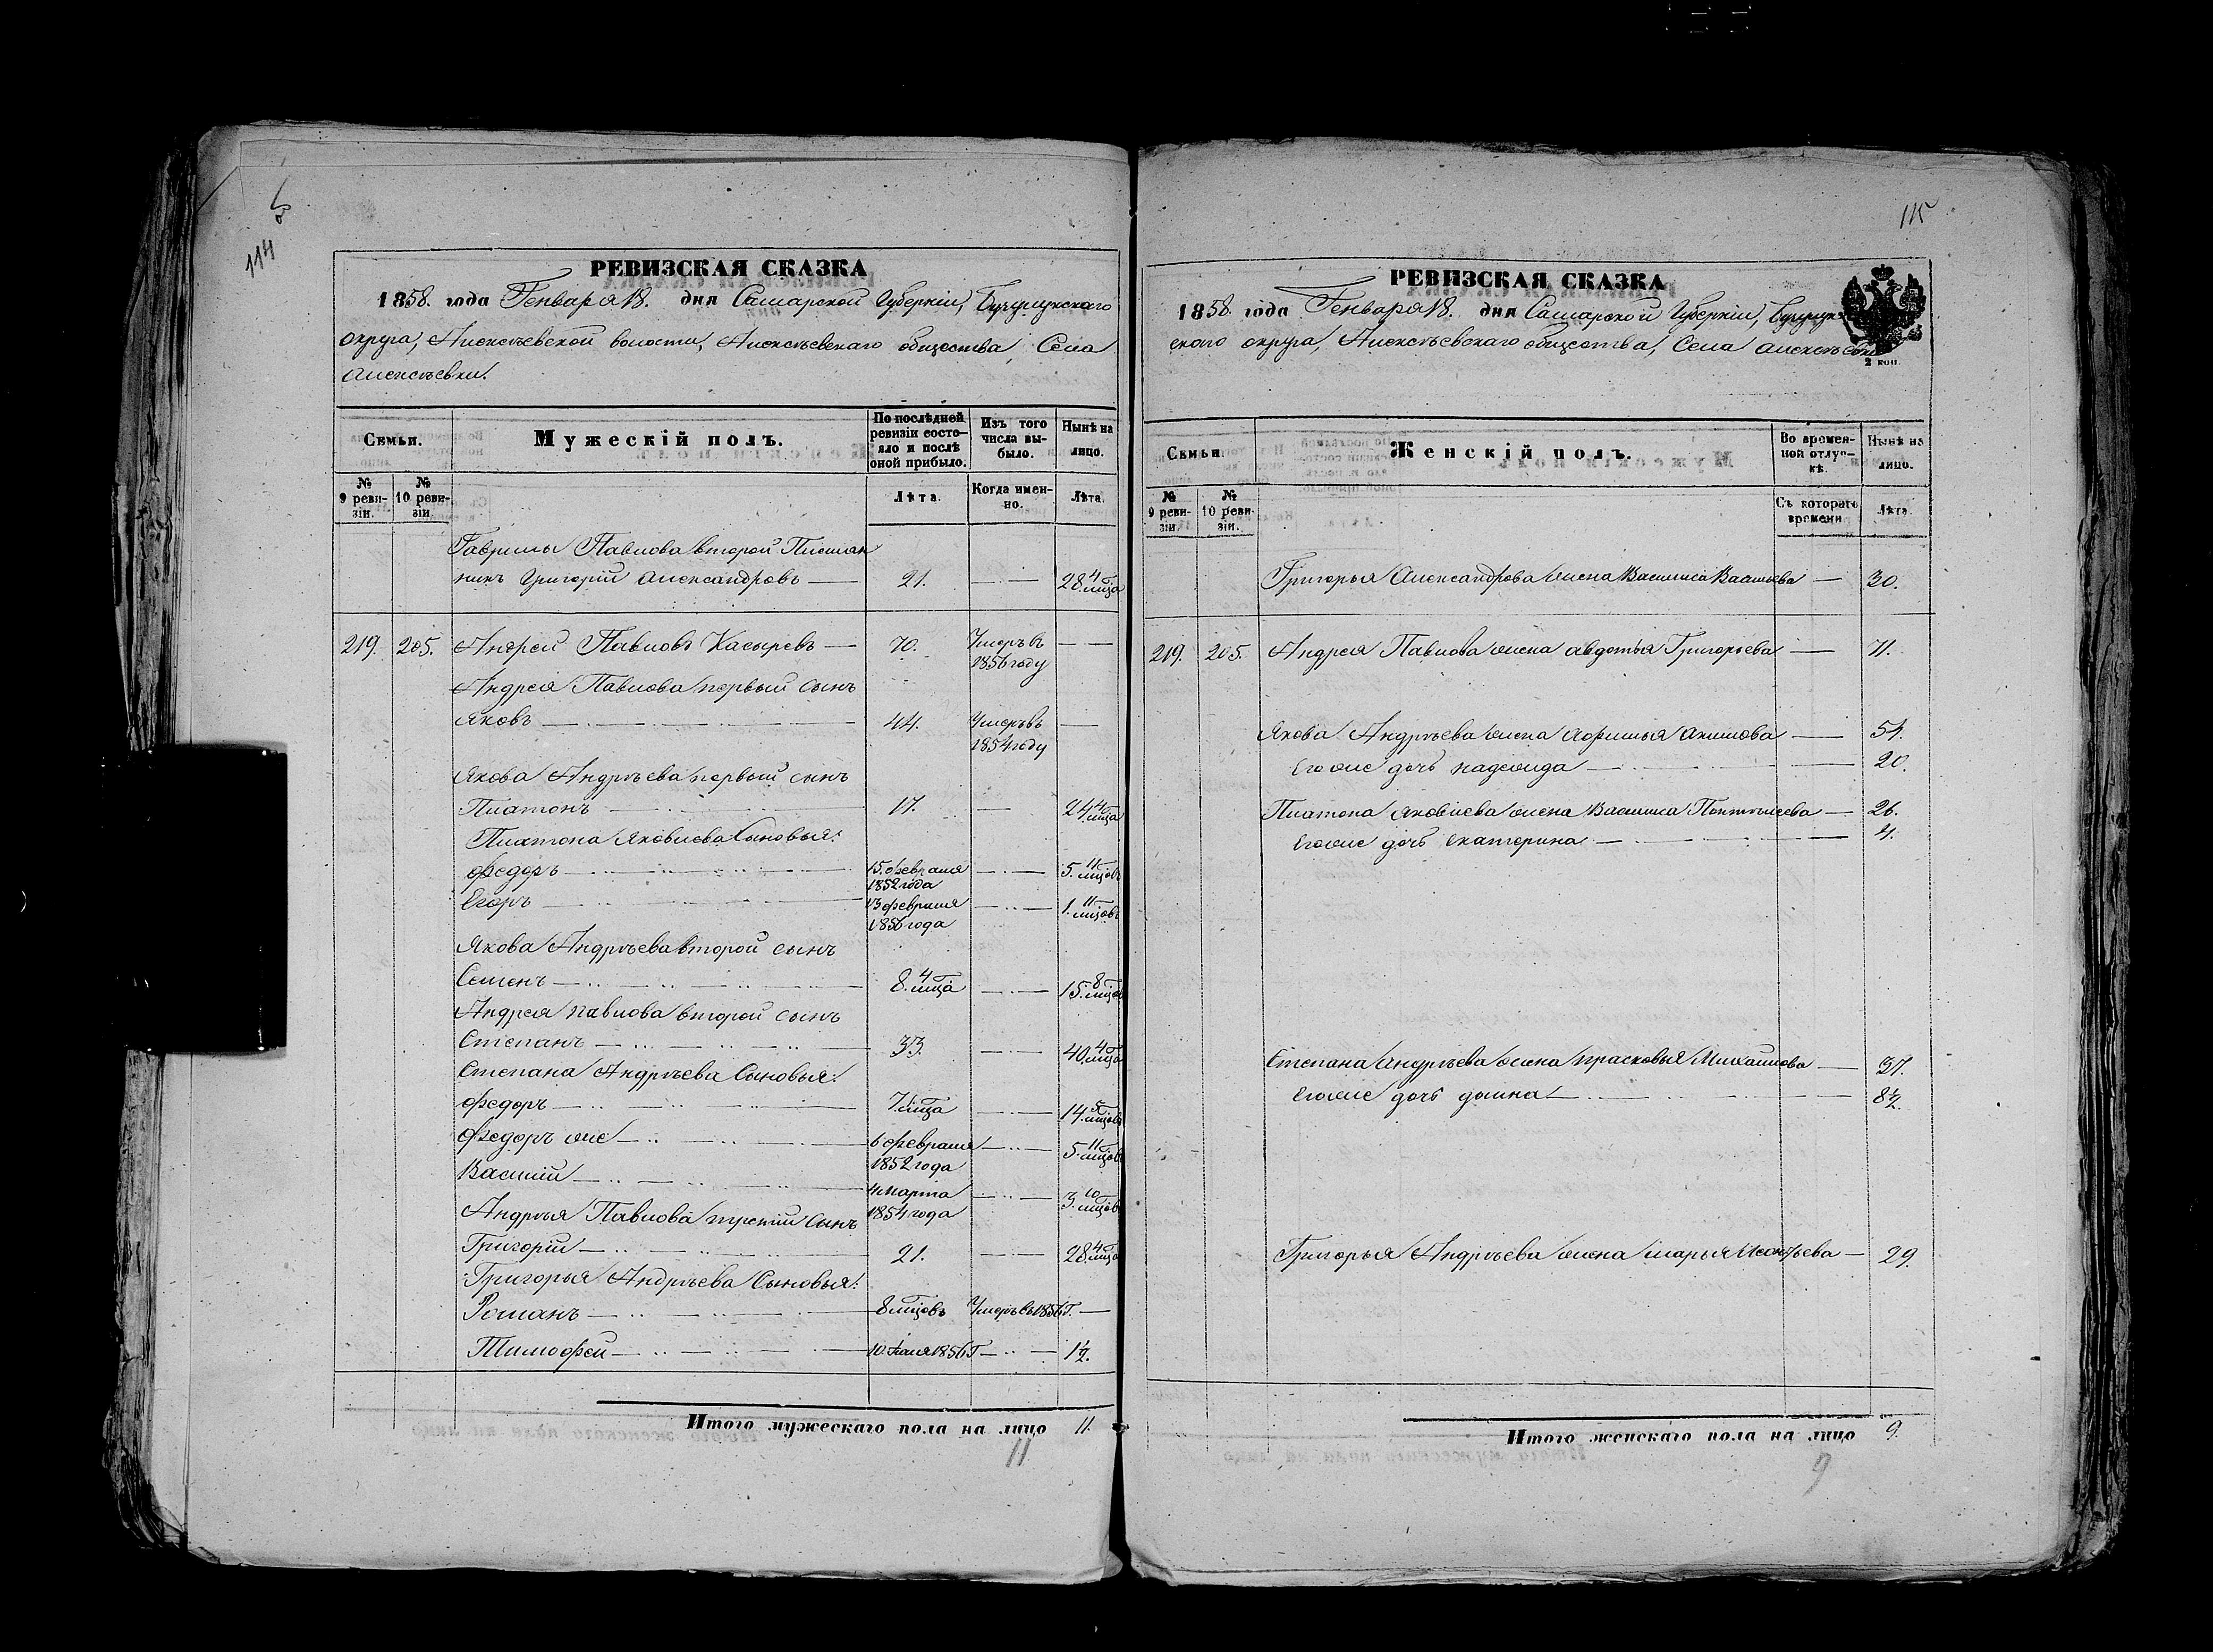 114
РЕВИЗСКАЯ СКАЗКА
1858. года Генваря 18. дня Самарской Губерніи,
округа, Алексѣевской волости, Алексѣевскаго общества, Села
Алексѣевки.
Семьи.
Мужескій полъ.
По послѣдней ревизіи состо-
яло и послѣ
оной прибыло.
Изъ того
числа вы-
было.
Нынѣ на
лицо.
№
9 реви-
зіи.
№
10 реви-
зіи
Лѣта.
Когда имен-
но.
Лѣта.
Гаврилы Павлова второй Племян
никъ Григорій Александровъ — 21. — 28. 4 мѣца
219. 205. Андрей Павловъ — 70. Умеръ въ 1856 году —
Андрея Павлова первый сынъ
Яковъ — 44. Умеръ въ 1854 году —
Якова Андрѣева первый сынъ
Платонъ — 17. — 24. 4 мѣца
Платона Яковлева Сыновья:
Федоръ — 15. февраля 1852 года — 5. 11 мѣцовъ
Егоръ — 13 февраля 1856 года — 1. 11 мѣцовъ
Якова Андрѣева второй сынъ
Семенъ — 8. 4 мѣца — 15. 8 мѣцов
Андрея Павлова второй сынъ
Степанъ — 33. — 40. 4 мѣца
Степана Андрѣева Сыновья:
Федоръ — 7. мѣца — 14. 5 мѣцовъ
Федоръ же — 6 февраля 1852 года — 5. 11 мѣцов
Василій — 4 марта 1854 года — 3. 10 мѣцовъ
Андрѣя Павлова третій Сынъ
Григорій — 21. — 28. 4 мѣца
Григорья Андрѣева Сыновья:
Романъ — 8 мѣцовъ Умеръ въ 1856 г. —
Тимофей — 10. 1856 г — 1½.
Итого мужескаго пола на лицо 11.
11
115
РЕВИЗСКАЯ СКАЗКА
1858. года Генваря 18. дня Самарской Губерніи,
скаго округа, Алексѣевскаго общества, Села Алексѣевки
2 коп.
Семьи
Женскій полъ.
Во времен-
ной отлуч-
кѣ.
Нынѣ на
лицо.
№
9 реви-
зіи.
№
10 реви-
зіи.
Съ котораго
времени
Лѣта.
Григорья Александрова жена Василиса Васильева — 30.
219. 205. Андрея Павлова жена Авдотья Григорьева — 71.
Якова Андрѣева жена Акимова — 54.
Его же дочь Надежда — 20.
Платона Яковлева жена Василиса — 26.
Его же дочь Екатерина — 4.
Степана Андрѣева жена Прасковья Михайлова — 37.
Его же дочь Домна — 8½.
Григорья Андрѣева жена Марья — 29.
Итого женскаго пола на лицо 9.
9